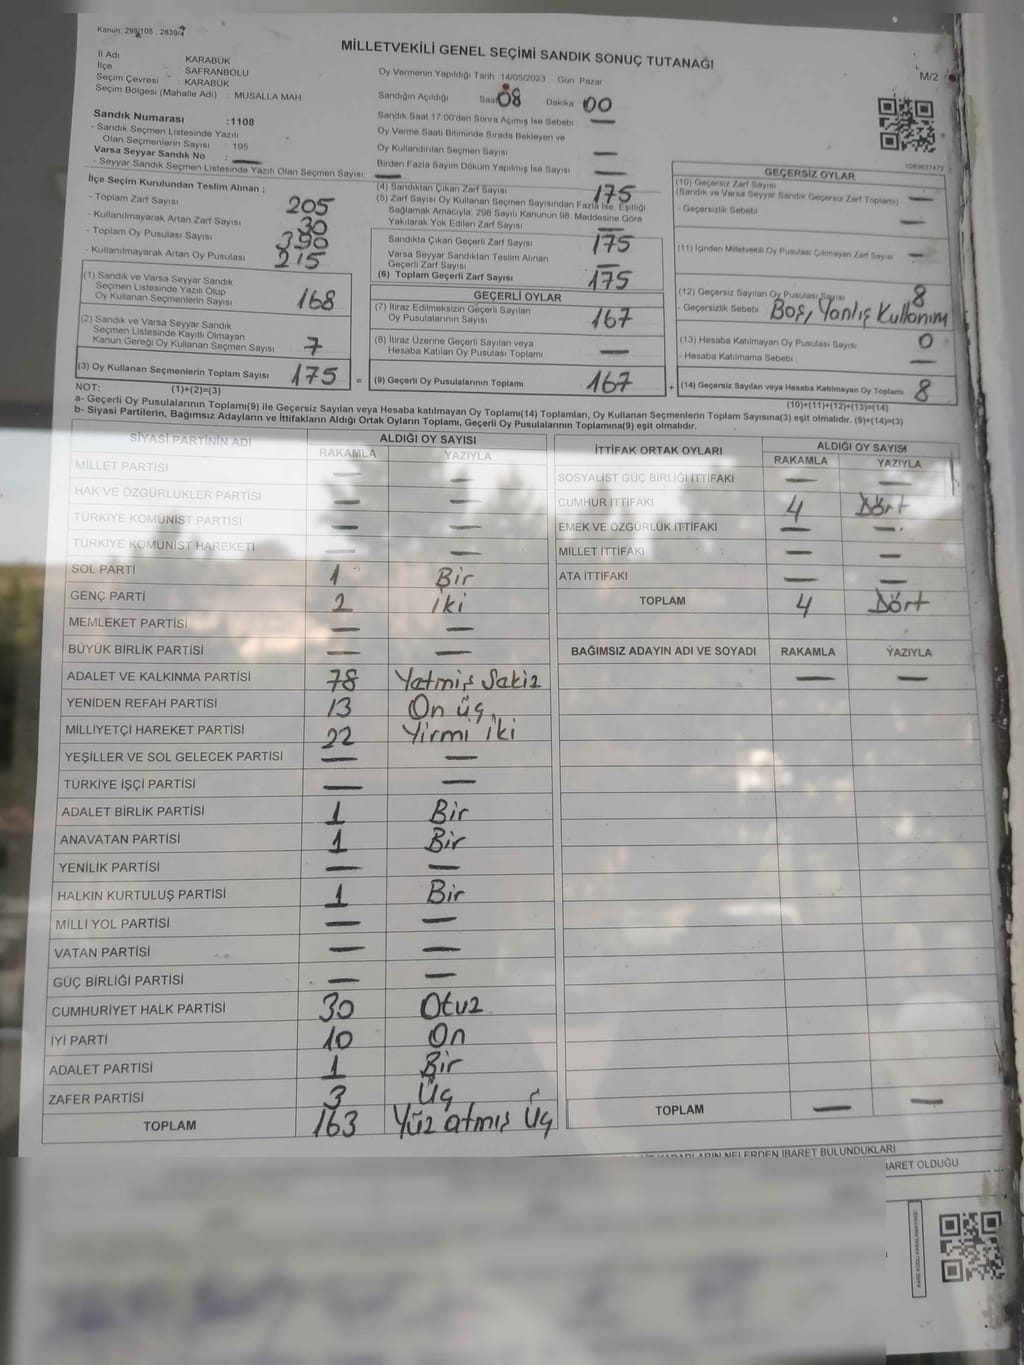 Kanun: 298/105 , 2839/4
MİLLETVEKİLİ GENEL SEÇİMİ SANDIK SONUÇ TUTANAĞI
M/2
İl Adı KARABÜK
İlçe SAFRANBOLU
Seçim Çevresi KARABÜK
Seçim Bölgesi (Mahalle Adı) MUSALLA MAH
Sandık Numarası :1108
- Sandık Seçmen Listesinde Yazılı
Olan Seçmenlerin Sayısı : 195
Varsa Seyyar Sandık No : —
- Seyyar Sandık Seçmen Listesinde Yazılı Olan Seçmen Sayısı: —
Oy Vermenin Yapıldığı Tarih 14/05/2023 Gün Pazar
Sandığın Açıldığı Saat 08 Dakika 00
Sandık Saat 17:00'den Sonra Açılmış İse Sebebi —
Oy Verme Saati Bitiminde Sırada Bekleyen ve
Oy Kullandırılan Seçmen Sayısı —
Birden Fazla Sayım Döküm Yapılmış İse Sayısı —
İlçe Seçim Kurulundan Teslim Alınan ;
- Toplam Zarf Sayısı 205
- Kullanılmayarak Artan Zarf Sayısı 30
- Toplam Oy Pusulası Sayısı 390
- Kullanılmayarak Artan Oy Pusulası 215
(1) Sandık ve Varsa Seyyar Sandık
Seçmen Listesinde Yazılı Olup
Oy Kullanan Seçmenlerin Sayısı 168
(2) Sandık ve Varsa Seyyar Sandık
Seçmen Listesinde Kayıtlı Olmayan
Kanun Gereği Oy Kullanan Seçmen Sayısı 7
(3) Oy Kullanan Seçmenlerin Toplam Sayısı 175 =
(1)+(2)=(3)
(4) Sandıktan Çıkan Zarf Sayısı 175
(5) Zarf Sayısı Oy Kullanan Seçmen Sayısından Fazla İse, Eşitliği
Sağlamak Amacıyla, 298 Sayılı Kanunun 98. Maddesine Göre
Yakılarak Yok Edilen Zarf Sayısı —
Sandıkta Çıkan Geçerli Zarf Sayısı 175
Varsa Seyyar Sandıktan Teslim Alınan
Geçerli Zarf Sayısı —
(6) Toplam Geçerli Zarf Sayısı 175
GEÇERLİ OYLAR
(7) İtiraz Edilmeksizin Geçerli Sayılan
Oy Pusulalarının Sayısı 167
(8) İtiraz Üzerine Geçerli Sayılan veya
Hesaba Katılan Oy Pusulası Toplamı —
(9) Geçerli Oy Pusulalarının Toplamı 167 +
GEÇERSİZ OYLAR
(10) Geçersiz Zarf Sayısı
(Sandık ve Varsa Seyyar Sandık Geçersiz Zarf Toplamı) —
- Geçersizlik Sebebi —
(11) İçinden Milletvekili Oy Pusulası Çıkmayan Zarf Sayısı —
(12) Geçersiz Sayılan Oy Pusulası Sayısı 8
- Geçersizlik Sebebi Boş, Yanlış Kullanım
(13) Hesaba Katılmayan Oy Pusulası Sayısı 0
- Hesaba Katılmama Sebebi —
(14) Geçersiz Sayılan veya Hesaba Katılmayan Oy Toplamı 8
(10)+(11)+(12)+(13)=(14)
NOT:
a- Geçerli Oy Pusulalarının Toplamı(9) ile Geçersiz Sayılan veya Hesaba katılmayan Oy Toplamı(14) Toplamları, Oy Kullanan Seçmenlerin Toplam Sayısına(3) eşit olmalıdır. (9)+(14)=(3)
b- Siyasi Partilerin, Bağımsız Adayların ve İttifakların Aldığı Ortak Oyların Toplamı, Geçerli Oy Pusulalarının Toplamına(9) eşit olmalıdır.
SİYASİ PARTİNİN ADI ALDIĞI OY SAYISI
RAKAMLA YAZIYLA
MİLLET PARTİSİ — —
HAK VE ÖZGÜRLÜKLER PARTİSİ — —
TÜRKİYE KOMÜNİST PARTİSİ — —
TÜRKİYE KOMÜNİST HAREKETİ — —
SOL PARTİ 1 Bir
GENÇ PARTİ 2 İki
MEMLEKET PARTİSİ — —
BÜYÜK BİRLİK PARTİSİ — —
ADALET VE KALKINMA PARTİSİ 78 Yetmiş Sekiz
YENİDEN REFAH PARTİSİ 13 On üç
MİLLİYETÇİ HAREKET PARTİSİ 22 Yirmi iki
YEŞİLLER VE SOL GELECEK PARTİSİ — —
TÜRKİYE İŞÇİ PARTİSİ — —
ADALET BİRLİK PARTİSİ 1 Bir
ANAVATAN PARTİSİ 1 Bir
YENİLİK PARTİSİ — —
HALKIN KURTULUŞ PARTİSİ 1 Bir
MİLLİ YOL PARTİSİ — —
VATAN PARTİSİ — —
GÜÇ BİRLİĞİ PARTİSİ — —
CUMHURİYET HALK PARTİSİ 30 Otuz
İYİ PARTİ 10 On
ADALET PARTİSİ 1 Bir
ZAFER PARTİSİ 3 Üç
TOPLAM 163 Yüz atmış Üç
İTTİFAK ORTAK OYLARI ALDIĞI OY SAYISI
RAKAMLA YAZIYLA
SOSYALİST GÜÇ BİRLİĞİ İTTİFAKI — —
CUMHUR İTTİFAKI 4 Dört
EMEK VE ÖZGÜRLÜK İTTİFAKI — —
MİLLET İTTİFAKI — —
ATA İTTİFAKI — —
TOPLAM 4 Dört
BAĞIMSIZ ADAYIN ADI VE SOYADI RAKAMLA YAZIYLA
— —
TOPLAM — —
NELERDEN İBARET BULUNDUKLARI
İBARET OLDUĞU